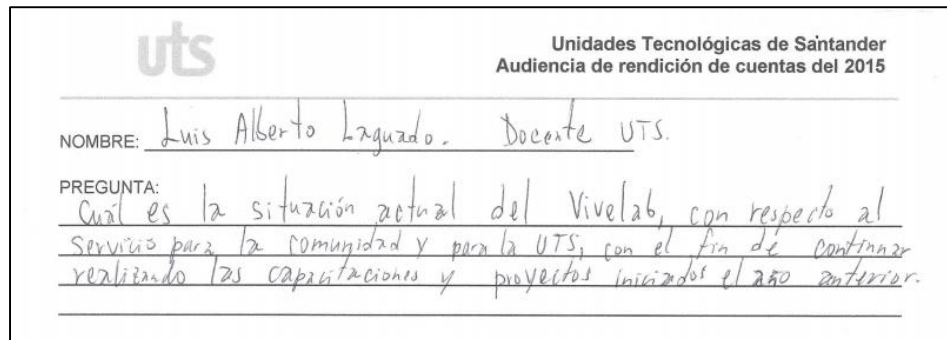 uts
Unidades Tecnológicas de Santander
Audiencia de rendición de cuentas del 2015
NOMBRE: Luis Alberto Laguado. Docente UTS.
PREGUNTA:
Cuál es la situación actual del Vivelab, con respecto al
Servicio para la comunidad y para la UTS, con el fin de continuar
realizando las capacitaciones y proyectos iniciados el año anterior.